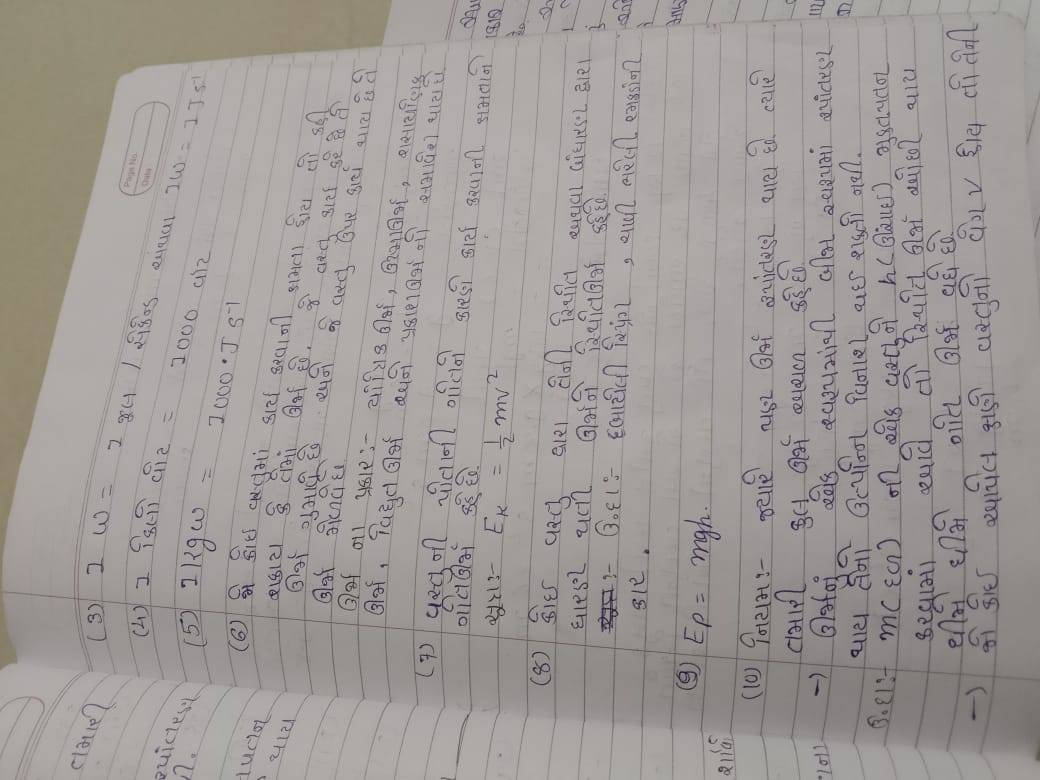 તમારી
(3) 1 W = 1 જુલ / સેકેન્ડ અથવા 1W = 1 J S⁻¹
Page No.
Date
(4) 1 કિલો વોટ = 1000 વોટ
(5) 1 Kgw = 1000 · J S⁻¹
(6) જો કોઇ વસ્તુમાં કાર્ય કરવાની ક્ષમતા હોય તો કહી
શકાય કે તેમાં ઊર્જા છે. જે વસ્તુ કાર્ય કરે છે તે
ઊર્જા ગુમાવે છે અને જે વસ્તુ ઉપર કાર્ય થાય છે તે
ઊર્જા મેળવે છે
ઊર્જા ના પ્રકાર :- યાંત્રિક ઊર્જા, ઉષ્માઊર્જા, રાસાયણિક
ઊર્જા, વિદ્યુત ઊર્જા અને પ્રકાશઊર્જા નો સમાવેશ થાય છે
(7) વસ્તુ ની પોતાની ગતિને કારણે કાર્ય કરવાની ક્ષમતાને
ગતિઊર્જા કહે છે.
સૂત્ર :- Eₖ = ½ mv²
(8) કોઇ વસ્તુ દ્વારા તેની સ્થિતિ અથવા બંધારણ દ્વારા
ધારણ થતી ઊર્જાને સ્થિતિઊર્જા કહે છે.
:- ઉ.દા :- દબાયેલી સ્પ્રિંગ, ચાવી ભરેલી રમકડાંની
કાર.
(9) Ep = mgh.
(10) નિયમ :- જ્યારે પણ ઊર્જા રૂપાંતરણ થાય છે ત્યારે
તમારી કુલ ઊર્જા અચળ કહે છે.
→ ઊર્જાનું એક સ્વરૂપમાંથી બીજા સ્વરૂપમાં રૂપાંતરણ
થાય તેનો ઉત્પન્ન વિનાશ થઇ શકતો નથી.
ઉ.દા :- m (દળ) ની એક વસ્તુને h (ઊંચાઇ) મુક્તપતન
કરવામાં આવે તો સ્થિતિ ઊર્જા ઓછી થાય
ધીમે ધીમે ગતિ ઊર્જા વધે છે
→ જો કોઇ આપેલ ક્ષણે વસ્તુનો વેગ v હોય તો તેની